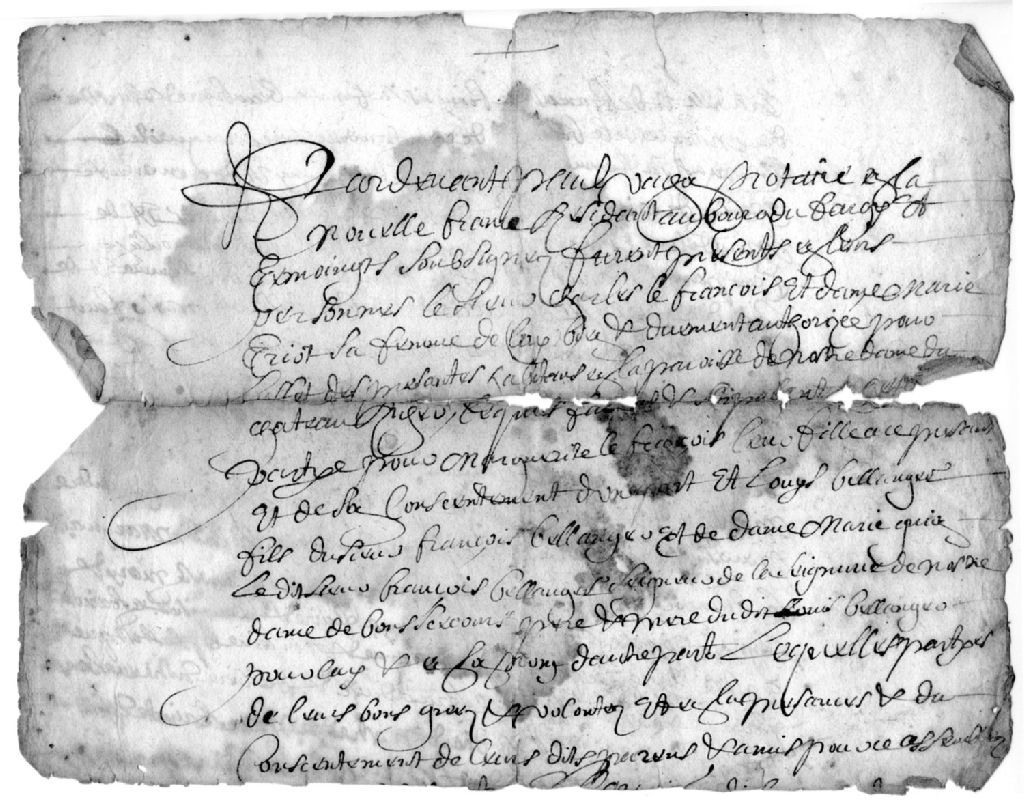 Pardevant Paul vachon Notaire en la
Nouvelle france Residant au bourg du fargy et
temoingts soubsignez furent presents en leurs
personnes le sieur charles le francois Et dame Marie
Triot sa femme de luy bien & duement authorizee pour
leffet des presantes habitans en la paroisse de nostre dame du
chateau
partye pour Marguerite le francois leur fille a ce presant
Et de son Consentement d'une part Et Louys bellanger
fils du sieur francois bellanger Et de dame Marie guion
Le dit sieur francois bellanger seigneur de la seignurie de nostre
dame de bonsecours pere & mere du dit Louis bellanger
pour luy & en son nom d'autre part Lesquelles partyes
de leurs bons grez & volontez Et en la presances & du
Consentement de leurs dits parens & amis pour ce assemblez